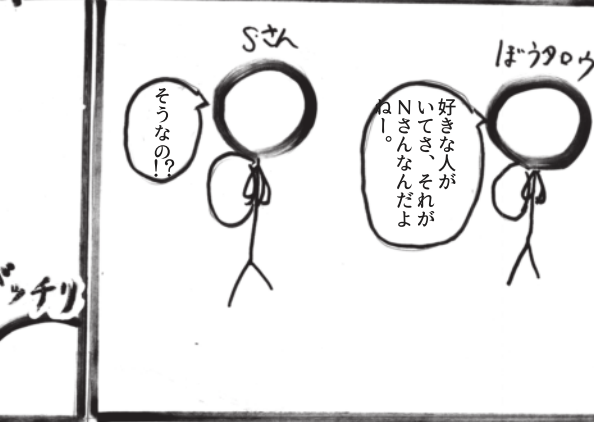 ぼうタロウ
好きな人が
いてさ、それが
Nさんなんだよ
ねー。
Sさん
そうなの!?
バッチリ